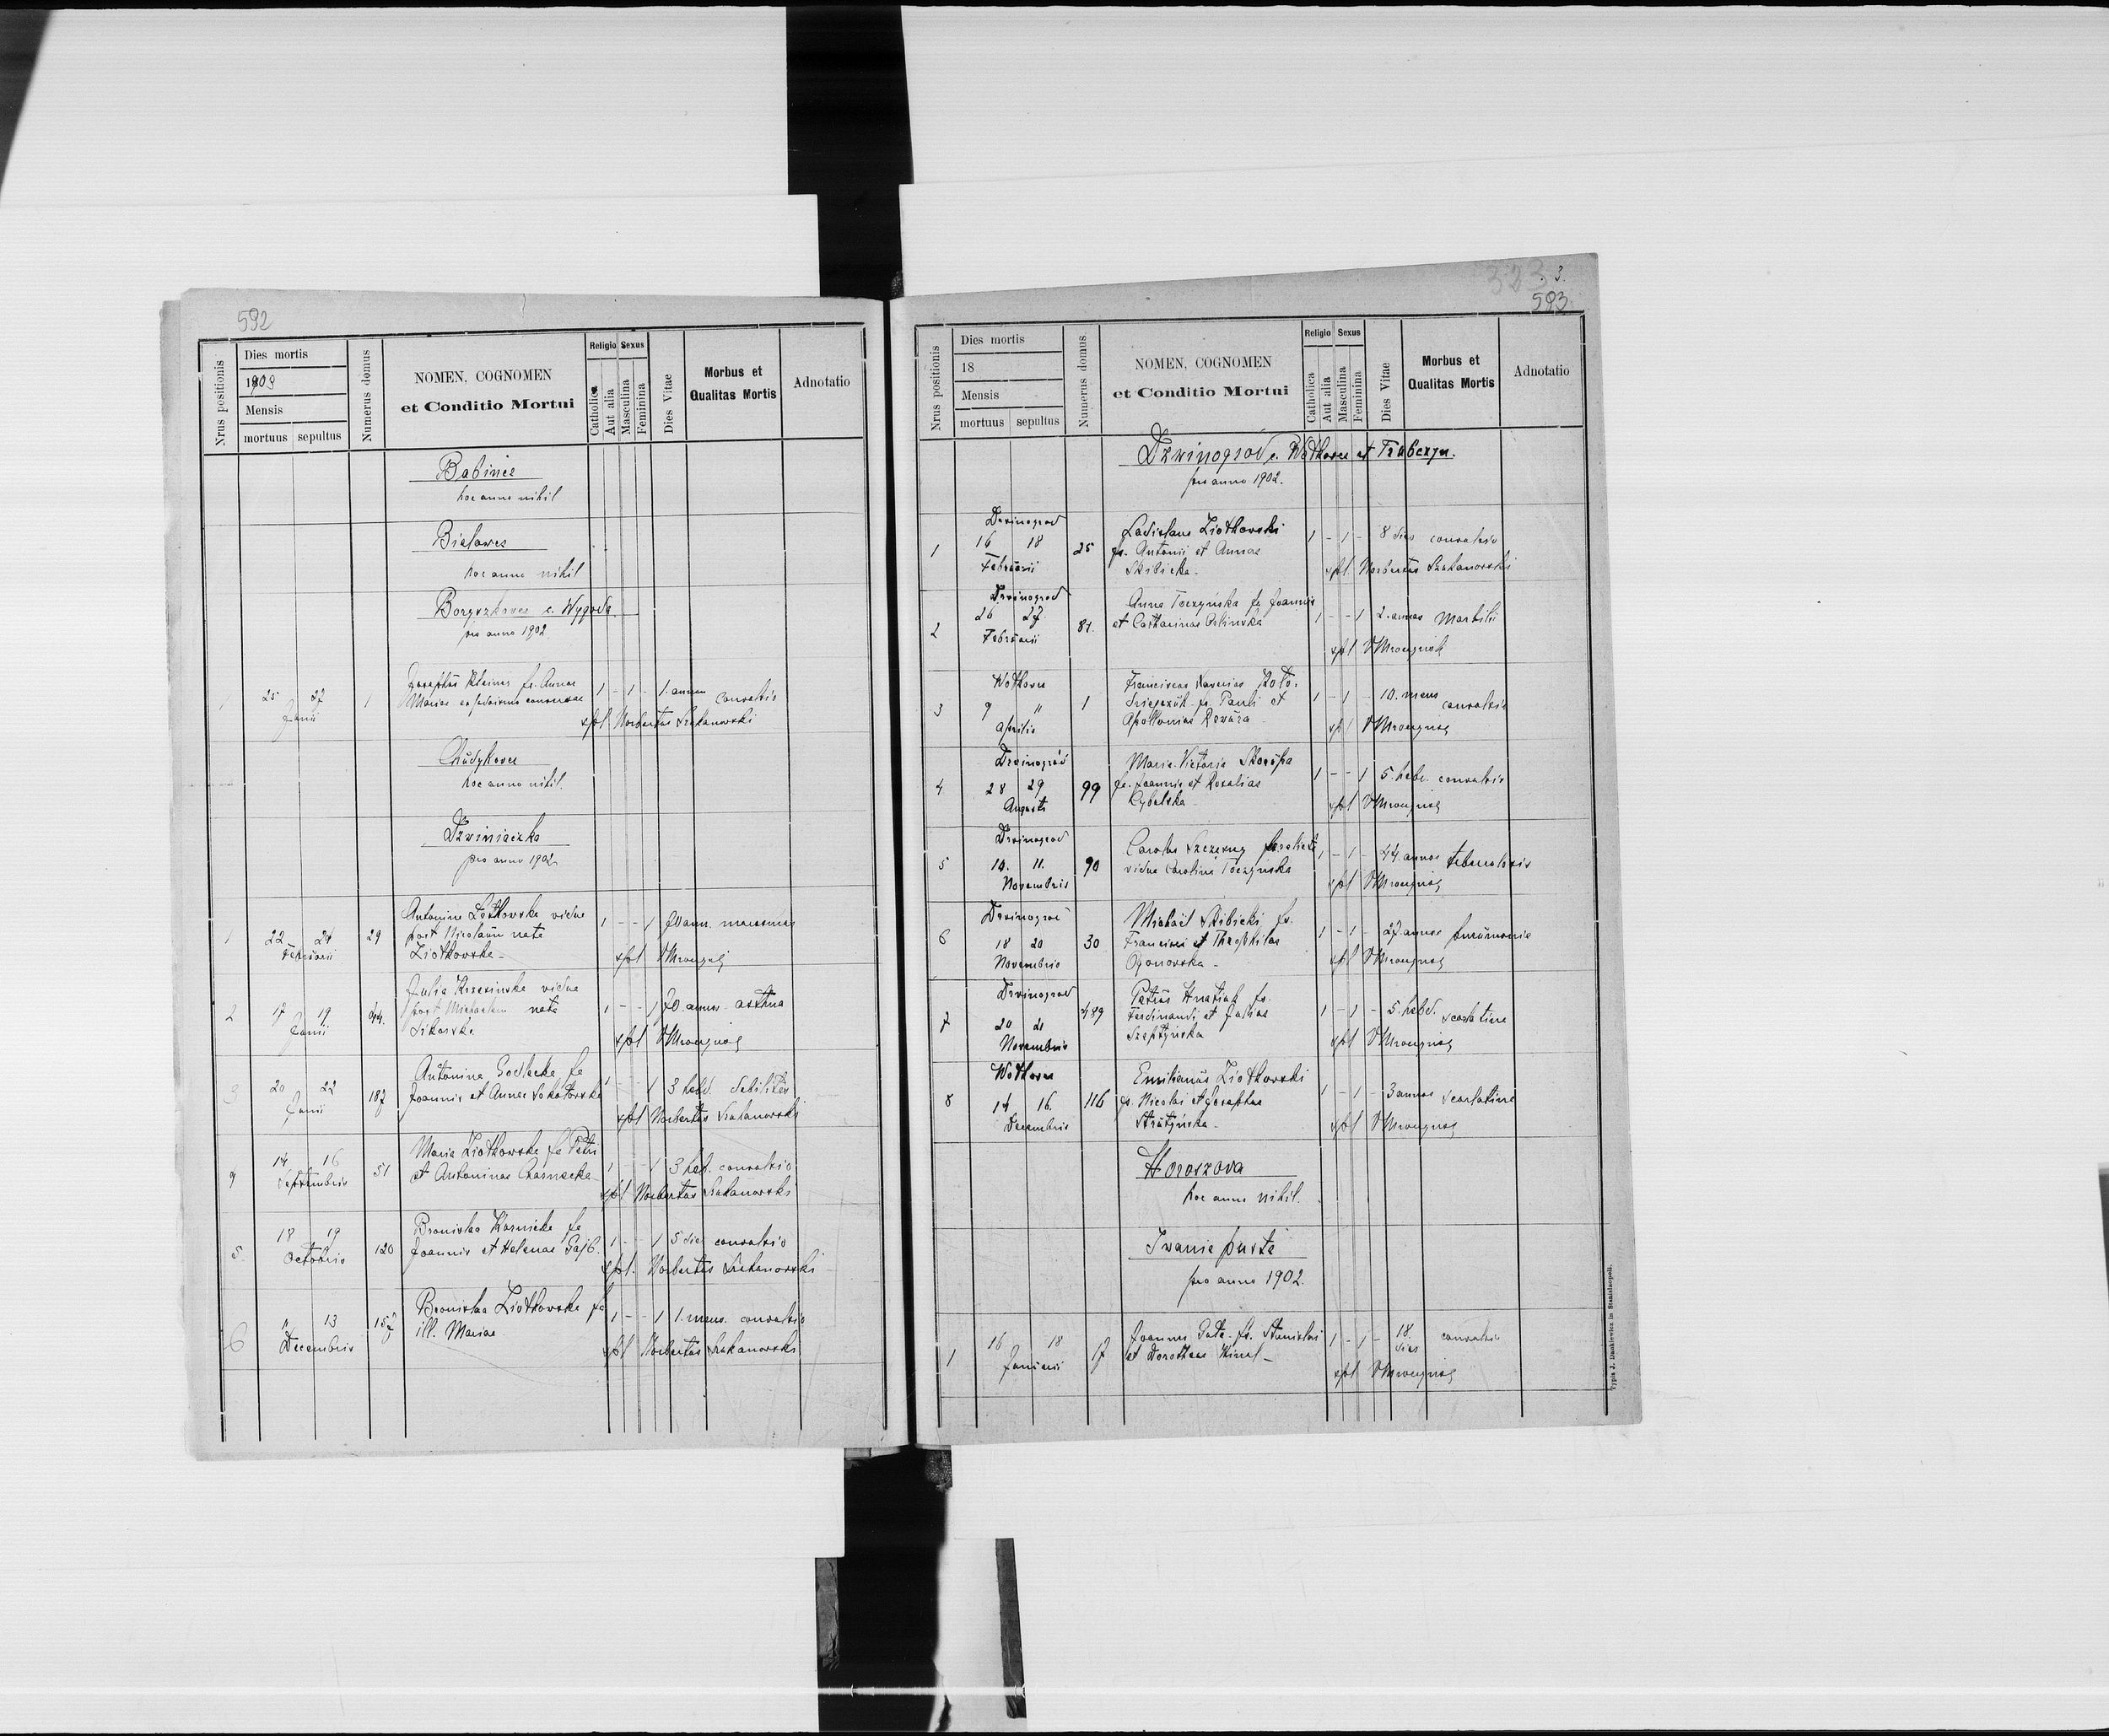 592
Nrus positionis
Dies mortis
1903
Mensis
mortuus sepultus
Numerus domus
NOMEN, COGNOMEN
et Conditio Mortui
Religio Sexus
Catholica
Aut alia
Masculina
Feminina
Dies Vitae
Morbus et
Qualitas Mortis
Adnotatio
Babince
hoc anno nihil
Bielowce
hoc anno nihil
Boryszkowce c. Wygoda
pro anno 1902.
1 25 27 Junii 1
Josephus Kleines fs. Annae
Mariae
1 - 1 - 1. annum convulsio
spl Norbertus Szukanowski
Chudykowce
hoc anno nihil.
Dzwiniaczka
pro anno 1902
1 22 24 Februarii 29
Antonina Ziołkowska vidua
post Nicolaum nata
Ziołkowska -
1 - - 1 70 ann. marasmus
spl
2 17 19 Junii 44.
Julia vidua
post Michaelem nata
Sikorska
1 - - 1 70. annos asthma
spl
3 20 22 Junii 187
Antonina Godlecka fa
Joannis et Annae Sokołowska
1 - - 1 3 hebd. debilitas
spl Norbertus Szukanowski
4 14 16 Septembris 51
Maria Ziołkowska fa Petri
et Antoninae Czarnecka
1 - - 1 3 heb. convulsio
spl Norbertus Szukanowski
5. 18 19 Octobris 120
Bronislaa Karnicka fa
Joannis et Helenae Gajb.
1 - - 1 5 dies convulsio
spl. Norbertus Szukanowski
6 11 13 Decembris 157
Bronislaa Ziołkowska fa
ill. Mariae
1 - - 1 1. mens. convulsio
spl Norbertus Szukanowski
323 3.
593.
Nrus positionis
Dies mortis
18
Mensis
mortuus sepultus
Numerus domus
NOMEN, COGNOMEN
et Conditio Mortui
Religio Sexus
Catholica
Aut alia
Masculina
Feminina
Dies Vitae
Morbus et
Qualitas Mortis
Adnotatio
Dzwinogrod c. Wołkowce et Trubczyn.
pro anno 1902.
Dzwinograd
1 16 18 Februarii 25
Ladislaus Ziołkowski
fs. Antonii et Annae
Skibicka.
1 - 1 - 8 dies convulsio
spl. Norbertus Szukanowski
Dzwinograd
2 26 27 Februarii 81.
Anna Toczyńska fa Joannis
et Catharinae
1 - - 1 2. annos Morbilli
spl
Wołkowce
3 9 11 Aprilis 1
Franciscus Xaverius
fs. Pauli et
Apolloniae
1 - 1 - 10. mens convulsio
spl
Dzwinogród
4 28 29 Augusti 99
Maria Victoria Skorupa
fa. Joannis et Rosaliae
Cybulska -
1 - - 1 5. hebd. convulsio
spl
Dzwinograd
5 10. 11. Novembris 90
Carolus Szczęsny
vidua Carolina Toczyńska
1 - 1 - 44 annos tuberculosis
spl
Dzwinograd
6 18 20 Novembris 30
Michaël Skibicki fs.
Francisci et Theophilae
Ogonowska -
1 - 1 - 27. annos pneumonia
spl
Dzwinograd
7 20 21 Novembris 489
Petrus Hnatiuk fs.
Ferdinandi et Juliae
Szeptyńska
1 - 1 - 5. hebd. scarlatina
spl
Wołkowce
8 14 16. Decembris 116
Emilianus Ziołkowski
fs. Nicolai et Josephae
Stratyńska -
1 - 1 - 3 annos Scarlatina
spl
Horoszowa
hoc anno nihil.
Iwanie puste
pro anno 1902.
1 16 18 Januarii 17
Joannes Guta fs. Stanislai
et Dorotheae Kinal -
1 - 1 - 18. dies convulsio
spl
Typis J. Dankiewicz in Stanislaopoli.